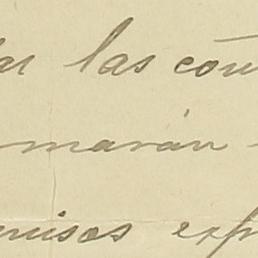 las con
marán
misos exp